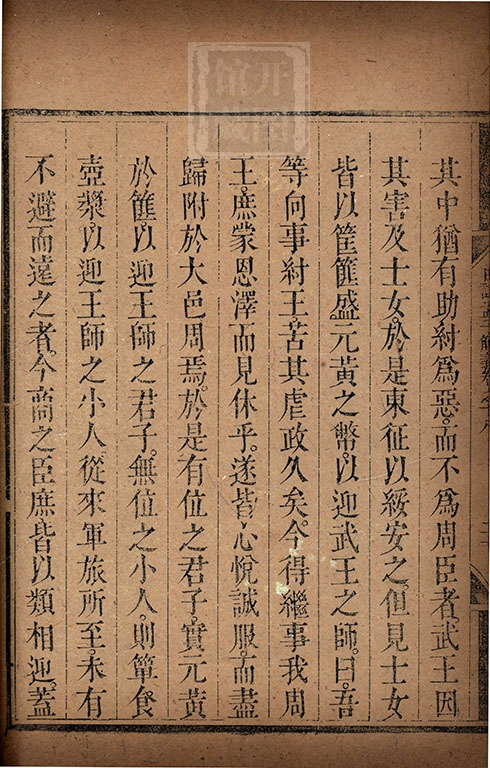 其中猶有助紂爲惡。而不爲周臣者。武王因
其害及士女。於是東征以綏安之。但見士女
皆以筐篚盛元黃之幣。以迎武王之師。曰。吾
等向事紂王苦其虐政久矣。今得繼事我周
王。庶蒙恩澤而見休乎。遂皆心悅誠服。而盡
歸附於大邑周焉。於是有位之君子。實元黃
於篚。以迎王師之君子。無位之小人。則簞食
壺漿。以迎王師之小人。從來軍旅所至。未有
不避而遠之者。今商之臣庶皆以類相迎。蓋